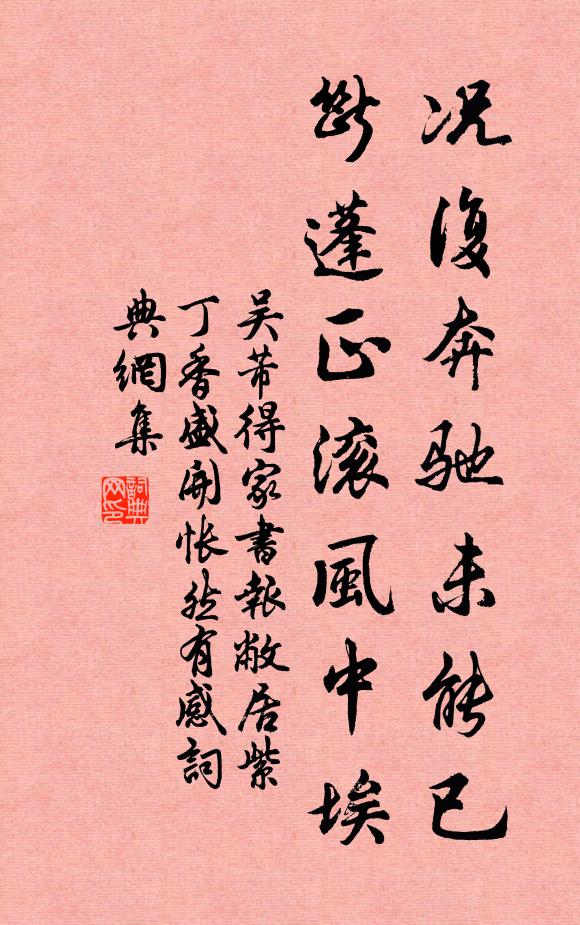 况復奔馳未能已
斷蓬正滚風中埃
吴芾得家書報敝居紫
丁香盛開悵然有感詞
典網集
詞典網印